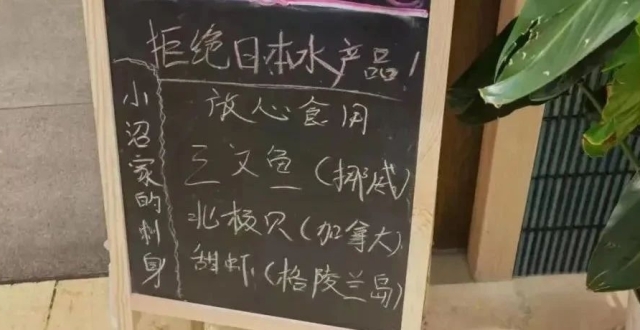 拒绝日本水产品！
小沼家的刺身
放心食用
三文鱼（挪威）
北极贝（加拿大）
甜虾（格陵兰岛）